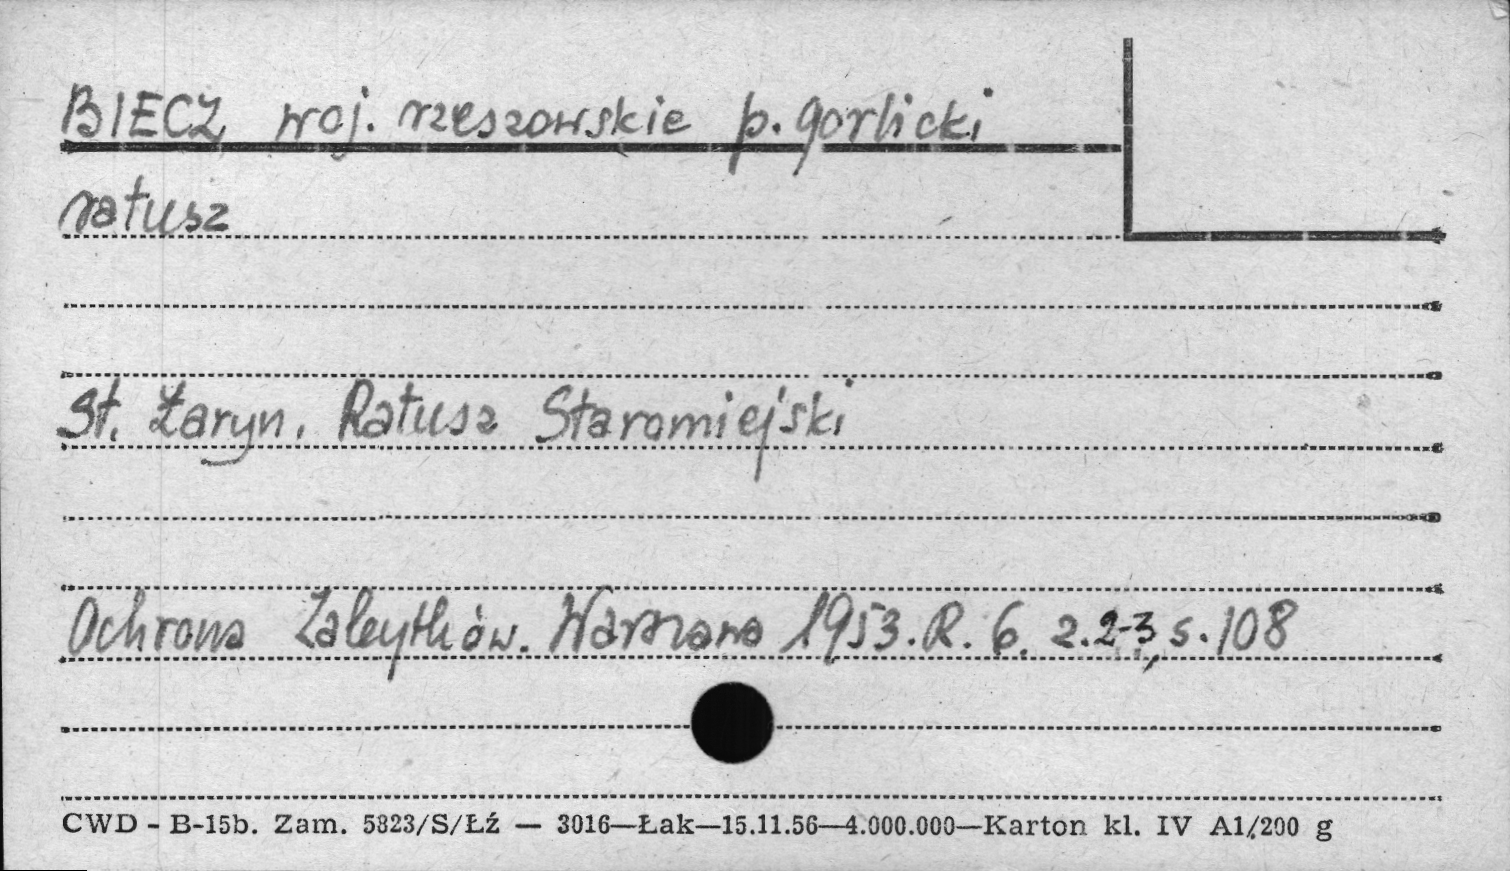 BIECZ, woj. rzeszowskie p. gorlicki
ratusz
St. Żaryn. Ratusz Staromiejski
Ochrona Zabytków. Warszawa 1953. R. 6. z. 2-3, s. 108
CWD - B-15b. Zam. 5823/S/Łź — 3016—Łak—15.11.56—4.000.000—Karton kl. IV A1/200 g